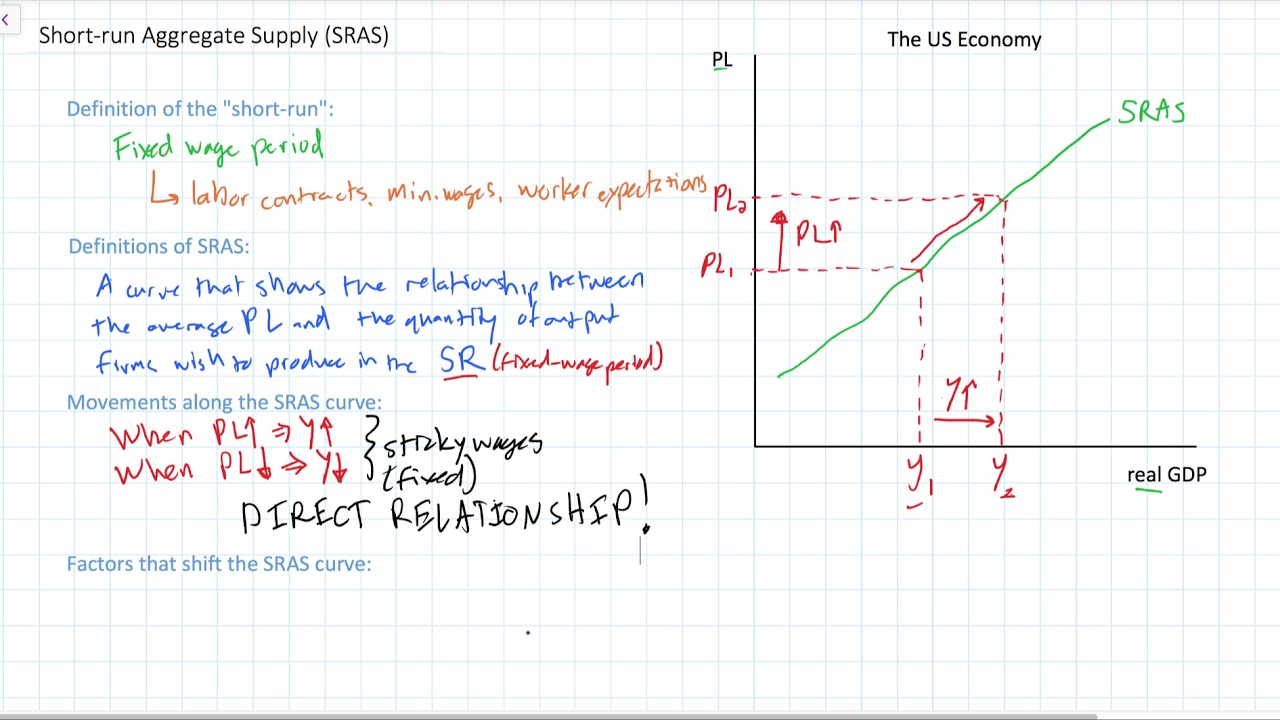 Short-run Aggregate Supply (SRAS)
Definition of the "short-run":
Fixed wage period
↳ labor contracts, min. wages, worker expectations
Definitions of SRAS:
A curve that shows the relationship between
the average PL and the quantity of output
firms wish to produce in the SR (fixed-wage period)
Movements along the SRAS curve:
When PL↑ ⇒ Y↑
When PL↓ ⇒ Y↓
} sticky wages
(fixed)
DIRECT RELATIONSHIP!
Factors that shift the SRAS curve:
The US Economy
PL
SRAS
PL₂
PL↑
PL₁
Y↑
Y₁
Y₂
real GDP